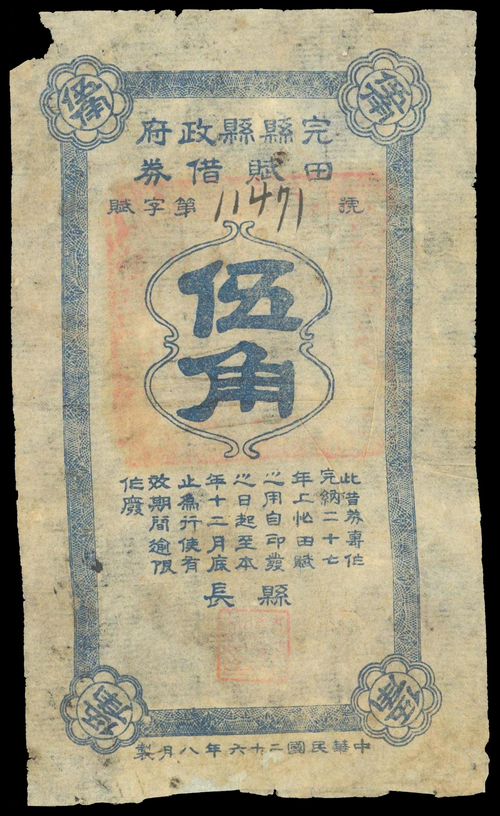 伍角
伍角
完縣縣政府
田賦借券
賦字第11471號
伍角
此借券專作
完納二十七
年上忙田賦
之用自印發
之日起至本
年十二月底
止為行使有
效期間逾限
作廢
縣長
伍角
伍角
中華民國二十六年八月製